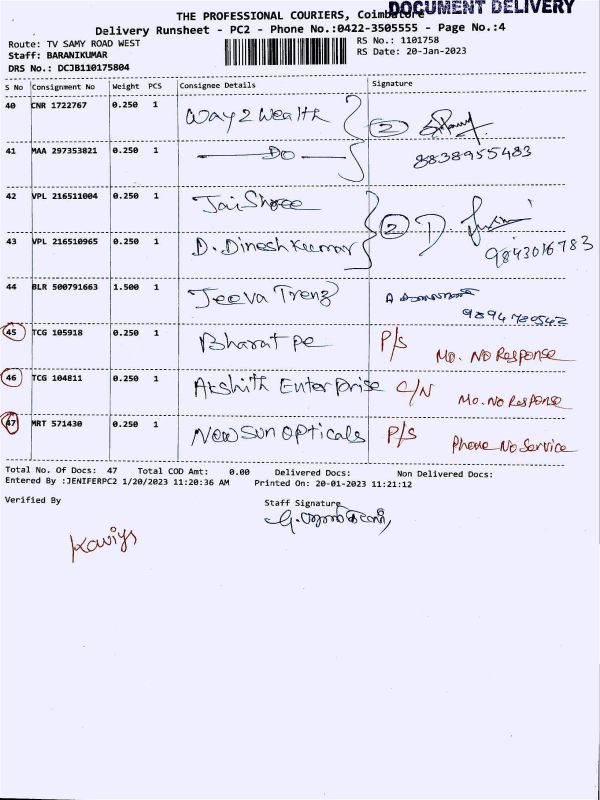 DOCUMENT DELIVERY
THE PROFESSIONAL COURIERS, Coimbatore
Delivery Runsheet - PC2 - Phone No.:0422-3505555 - Page No.:4
Route: TV SAMY ROAD WEST RS No.: 1101758
Staff: BARANIKUMAR RS Date: 20-Jan-2023
DRS No.: DCJB110175804
S No Consignment No Weight PCS Consignee Details Signature
40 CNR 1722767 0.250 1 Way 2 Wealth 2
41 MAA 297353821 0.250 1 Do 8838955483
42 VPL 216511004 0.250 1 Jai Shree
43 VPL 216510965 0.250 1 D. Dinesh Kumar 2 D 9843016783
44 BLR 500791663 1.500 1 Jeeva Trenz 9894780542
45 TCG 105918 0.250 1 Bharat pe P/s Mo. No Response
46 TCG 104811 0.250 1 Akshith Enterprise C/N Mo. No Response
47 MRT 571430 0.250 1 New Sun opticals P/s Phone No Service
Total No. Of Docs: 47 Total COD Amt: 0.00 Delivered Docs: Non Delivered Docs:
Entered By :JENIFERPC2 1/20/2023 11:20:36 AM Printed On: 20-01-2023 11:21:12
Verified By Staff Signature